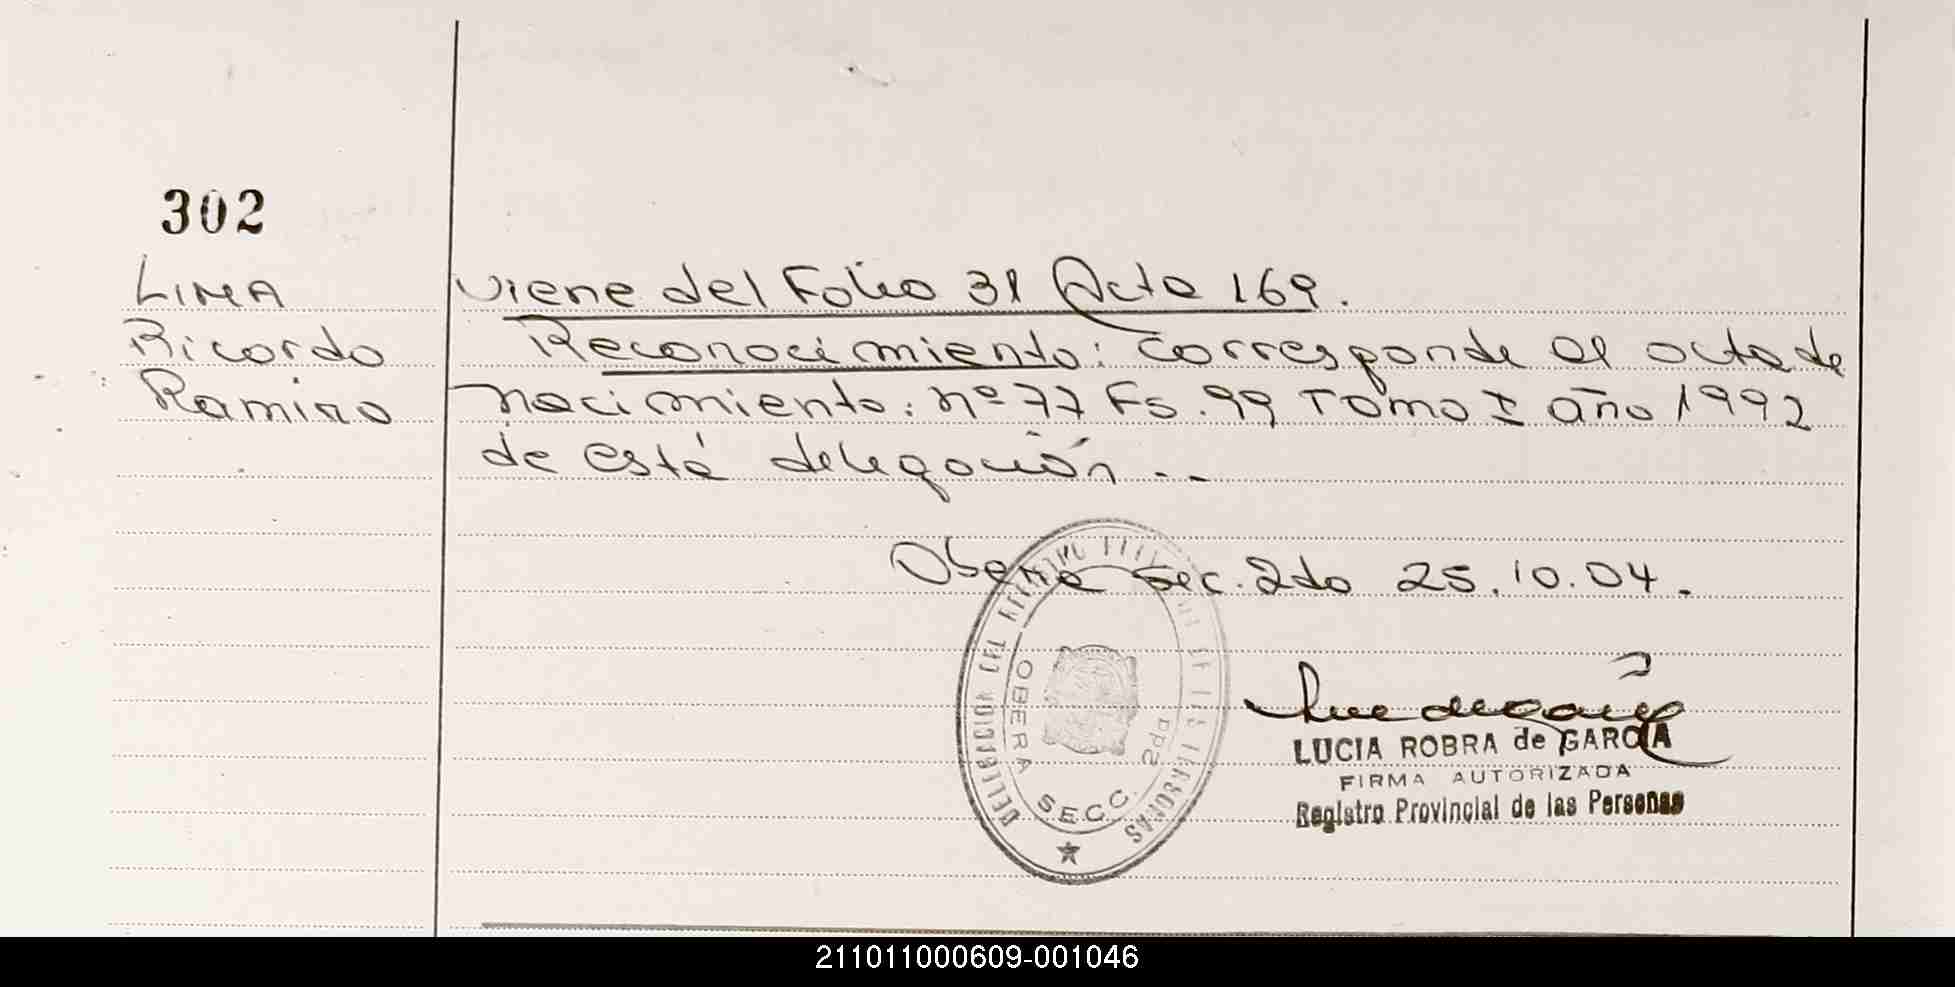 302
LIMA
Ricardo
Ramiro
viene del Folio 31 Acta 169.
Reconocimiento: corresponde al acta de
nacimiento: nº 77 Fs. 99 Tomo I año 1992
de está delegación ..
Oberá sec. 2da 25.10.04.
DELEGACION DEL REGISTRO DE LAS PERSONAS
OBERA
SECC. 2da
LUCIA ROBRA de GARCIA
FIRMA AUTORIZADA
Registro Provincial de las Personas
211011000609-001046